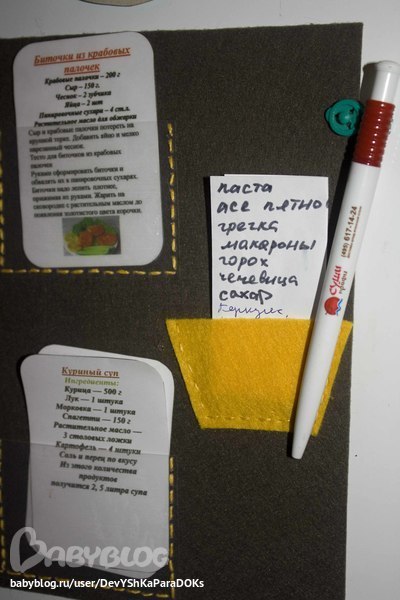 Биточки из крабовых
палочек
Крабовые палочки – 200 г
Сыр – 150 г.
Чеснок – 2 зубчика
Яйца – 2 шт
Панировочные сухари – 4 ст.л.
Растительное масло для обжарки
Сыр и крабовые палочки потереть на
крупной терке. Добавить яйцо и мелко
нарезанный чеснок.
Тесто для биточков из крабовых
палочек
Руками сформировать биточки и
обвалять их в панировочных сухарях.
Биточки надо лепить плотнее,
прижимая их руками. Жарить на
сковородке с растительным маслом до
появления золотистого цвета корочки.
паста
асе пятно
гречка
макароны
горох
чечевица
сахар
(495) 617-14-24
СУШИ
Куриный суп
Ингредиенты:
Курица — 500 г
Лук — 1 штука
Морковка — 1 штука
Спагетти — 150 г
Растительное масло —
3 столовых ложки
Картофель — 4 штуки
Соль и перец по вкусу
Из этого количества
продуктов
получится 2, 5 литра супа
BABYBLOG
babyblog.ru/user/DevYShKaParaDOKs